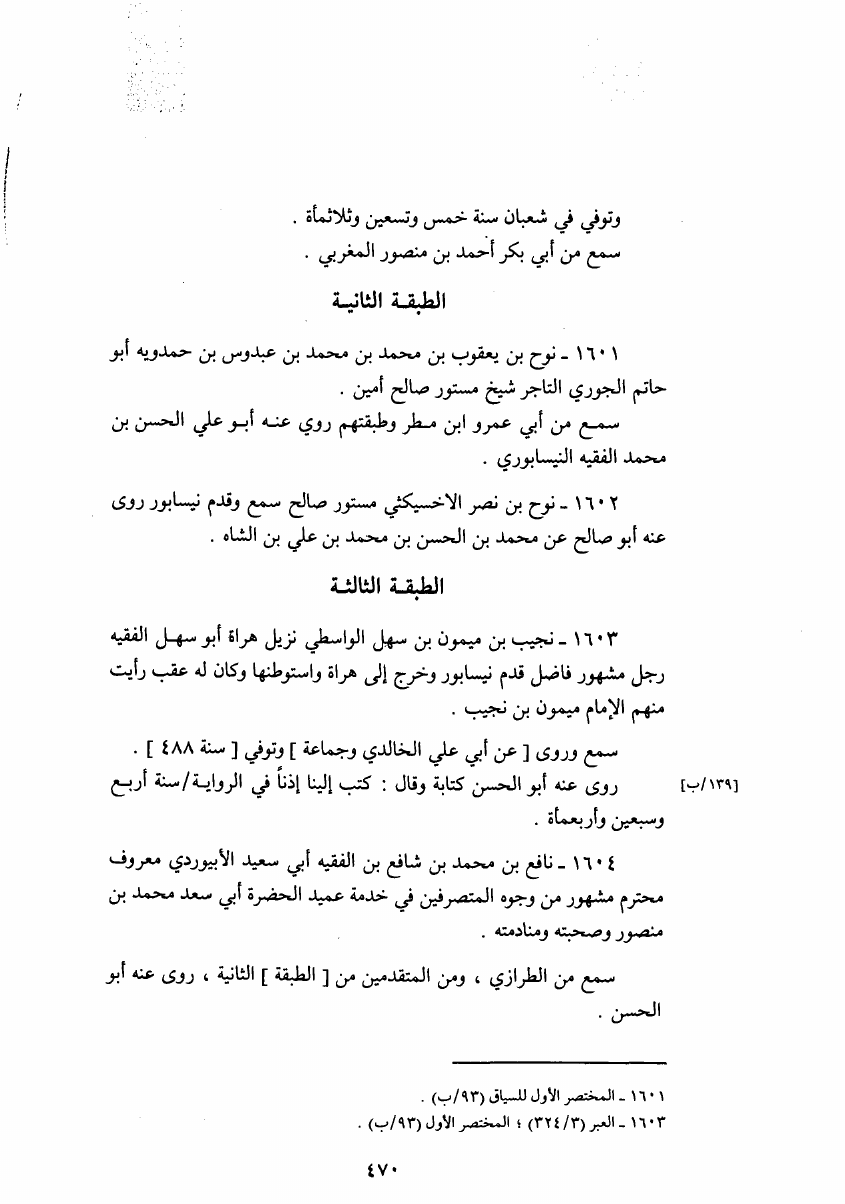 وتوفي في شعبان سنة خمس وتسعين وثلاثمأة .
سمع من أبي بكر أحمد بن منصور المغربي .
الطبقة الثانية
١٦٠١ ـ نوح بن يعقوب بن محمد بن محمد بن عبدوس بن حمدويه أبو
حاتم الجوري التاجر شيخ مستور صالح أمين .
سمع من أبي عمرو ابن مطر وطبقتهم روي عنه أبو علي الحسن بن
محمد الفقيه النيسابوري .
١٦٠٢ ـ نوح بن نصر الاخسيكثي مستور صالح سمع وقدم نيسابور روى
عنه أبو صالح عن محمد بن الحسن بن محمد بن علي بن الشاه .
الطبقة الثالثة
١٦٠٣ ـ نجيب بن ميمون بن سهل الواسطي نزيل هراة أبو سهل الفقيه
رجل مشهور فاضل قدم نيسابور وخرج إلى هراة واستوطنها وكان له عقب رأيت
منهم الإمام ميمون بن نجيب .
سمع وروى [ عن أبي علي الخالدي وجماعة ] وتوفي [ سنة ٤٨٨ ] .
روى عنه أبو الحسن كتابة وقال : كتب إلينا إذناً في الرواية/سنة أربع [١٣٩/ب]
وسبعين وأربعمأة .
١٦٠٤ ـ نافع بن محمد بن شافع بن الفقيه أبي سعيد الأبيوردي معروف
محترم مشهور من وجوه المتصرفين في خدمة عميد الحضرة أبي سعد محمد بن
منصور وصحبته ومنادمته .
سمع من الطرازي ، ومن المتقدمين من [ الطبقة ] الثانية ، روى عنه أبو
الحسن .
١٦٠١ ـ المختصر الأول للسياق (٩٣/ب) .
١٦٠٣ ـ العبر (٣٢٤/٣) ؛ المختصر الأول (٩٣/ب) .
٤٧٠